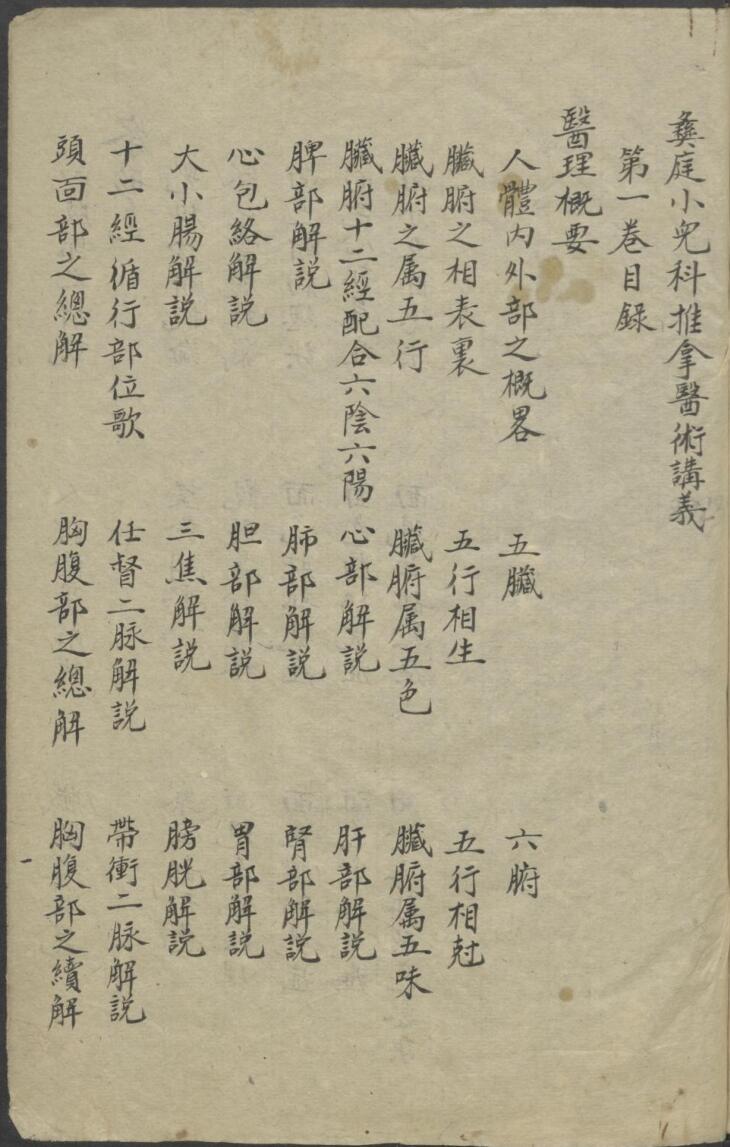 彝庭小兒科推拿醫術講義
第一卷目錄
醫理概要
人體内外部之概畧　五臟　六腑
臟腑之相表裏　五行相生　五行相尅
臟腑之属五行　臟腑属五色　臟腑属五味
臟腑十二經配合六陰六陽　心部解説　肝部解説
脾部解説　肺部解説　腎部解説
心包絡解説　胆部解説　胃部解説
大小腸解説　三焦解説　膀胱解説
十二經循行部位歌　任督二脉解説　帶衝二脉解説
頭面部之總解　胸腹部之總解　胸腹部之續解